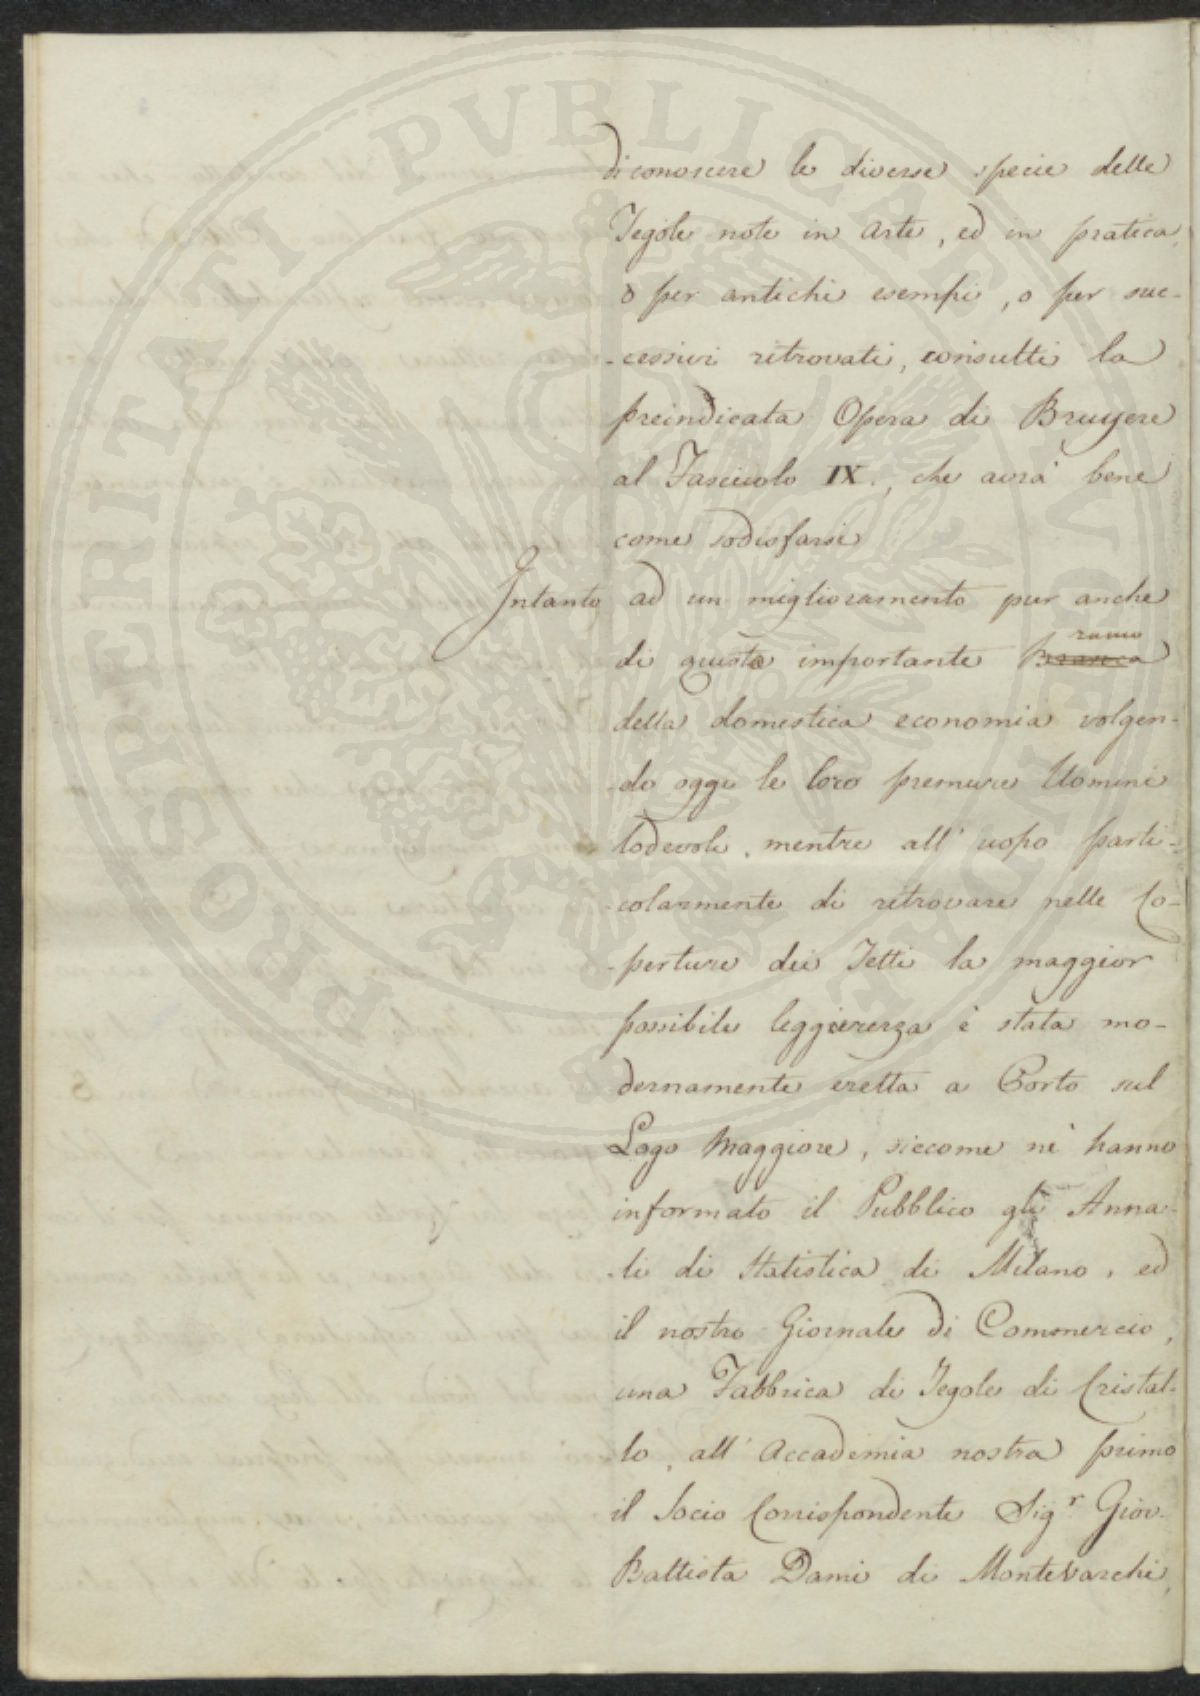 di conoscere le diverse specie delle
Tegole note in Arte, ed in pratica,
o per antichi esempi, o per suc-
-cessivi ritrovati, consulti la
preindicata Opera di Bruyere
al Fascicolo IX., che avrà bene
come sodisfarsi
Intanto ad un miglioramento pur anche
ramo
di questo importante Branca
della domestica economia volgen-
-do oggi le loro premure Uomini
lodevoli, mentre all' uopo parti-
-colarmente di ritrovare nelle Co-
-perture dei Tetti la maggior
possibile leggierezza è stata mo-
dernamente eretta a Porto sul
Lago Maggiore, siccome nè hanno
informato il Pubblico gli Anna-
-li di Statistica di Milano, ed
il nostro Giornale di Commercio,
una Fabbrica di Tegole di Cristal-
lo, all' Accademia nostra primo
il Socio Corrispondente Sig.r Giov.
Battista Dami di Montevarchi,
PROSPERITATI PVBLICAE AVGENDAE